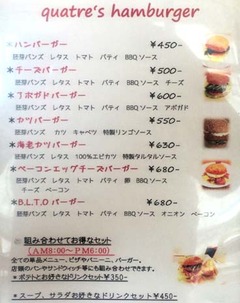 quatre's hamburger
*ハンバーガー ¥450-
胚芽バンズ レタス トマト パティ BBQソース
*チーズバーガー ¥500-
胚芽バンズ レタス トマト パティ BBQソース チーズ
*アボガドバーガー ¥600-
胚芽バンズ レタス トマト パティ BBQソース アボガド
*カツバーガー ¥550-
胚芽バンズ カツ キャベツ 特製リンゴソース
*海老カツバーガー ¥630-
胚芽バンズ レタス 100%エビカツ 特製タルタルソース
*ベーコンエッグチーズバーガー ¥680-
胚芽バンズ レタス トマト パティ 卵 BBQソース
チーズ ベーコン
*B.L.T.Oバーガー ¥680-
胚芽バンズ レタス トマト パティ BBQソース オニオン ベーコン
組み合わせてお得なセット
(AM8:00~PM6:00)
全ての単品メニュー、ピザやパニーニ、バーガー、
店頭のパンやサンドウィッチ等にも組み合わせできます。
*ポテトとお好きなドリンクセット¥350-
*スープ、サラダお好きなドリンクセット¥450-